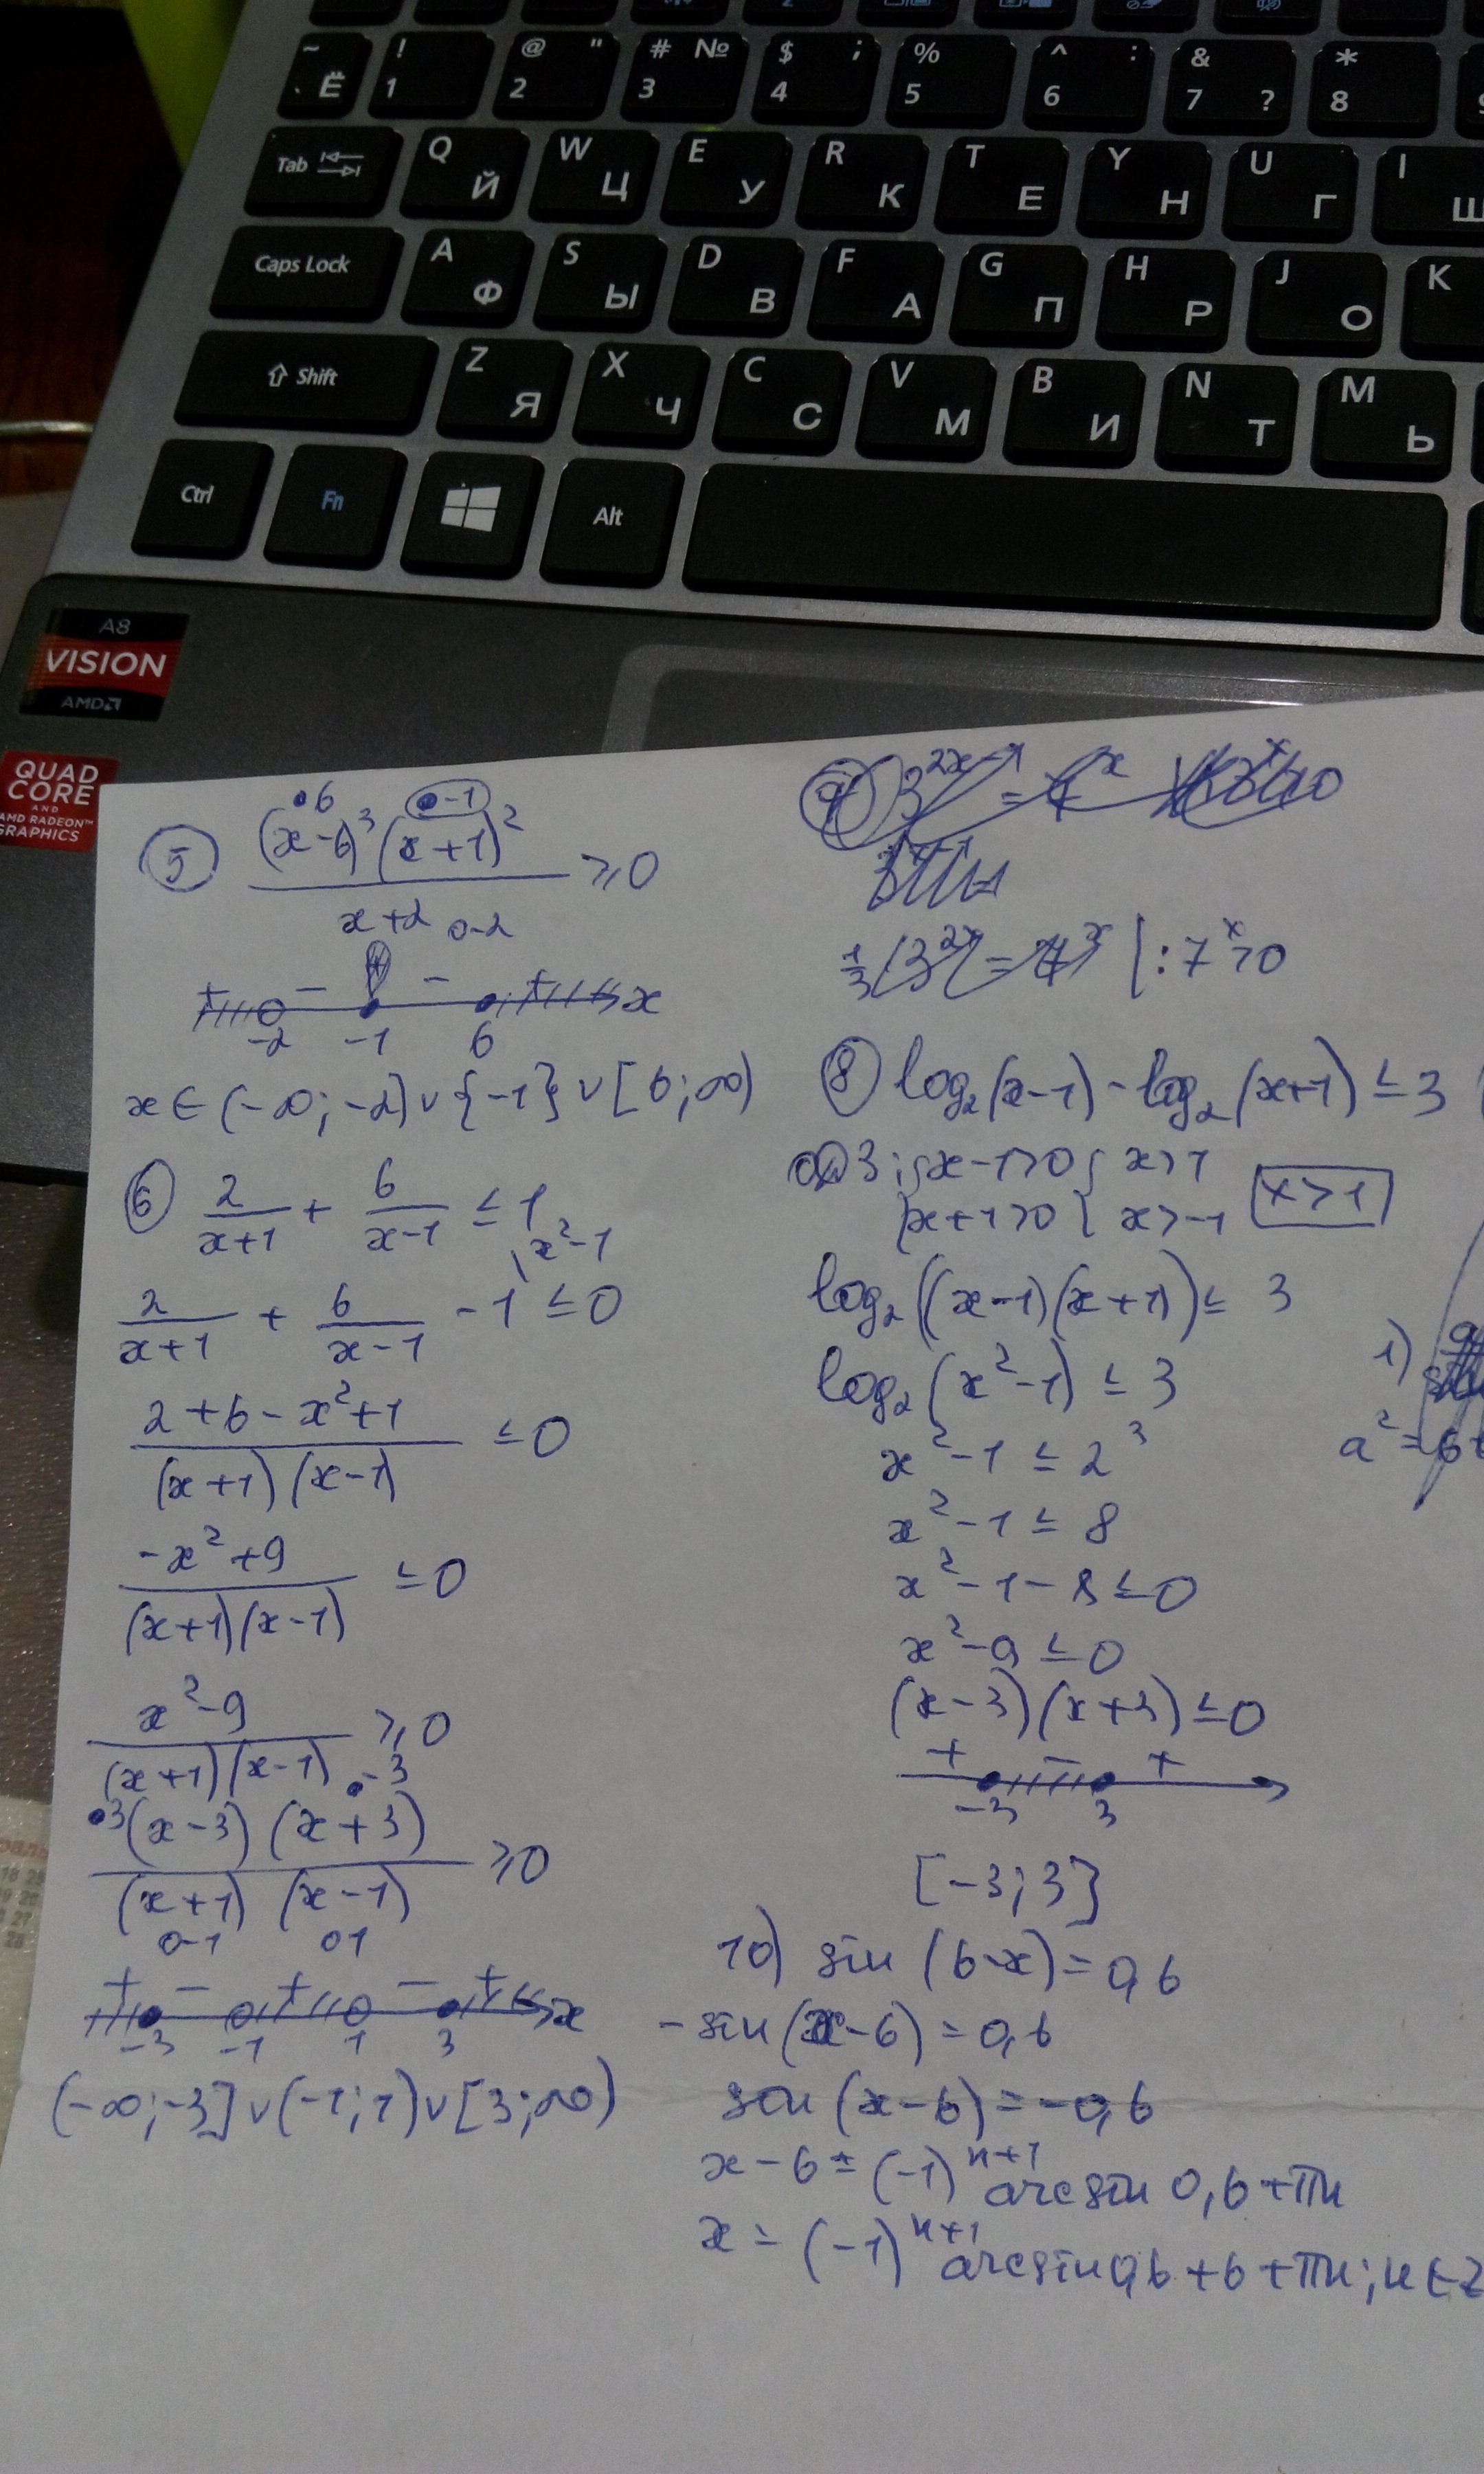 ~ Ё
! 1
@ " 2
# № 3
$ ; 4
% 5
^ : 6
& 7 ?
* 8
Tab
Q Й
W Ц
E У
R К
T Е
Y Н
U Г
I Ш
Caps Lock
A Ф
S Ы
D В
F А
G П
H Р
J О
K
Shift
Z Я
X Ч
C С
V М
B И
N Т
M Ь
Ctrl
Fn
Alt
A8
VISION
AMD
QUAD
CORE
AND
AMD RADEON™
GRAPHICS
•6 •-1
⑤ (x-6)³(x+1)² / x+2 ≥0
o-2
+ - + - + x
-2 -1 6
x∈(-∞;-2)∪{-1}∪[6;∞)
⑥ 2/(x+1) + 6/(x-1) ≤ 1
\x²-1
2/(x+1) + 6/(x-1) - 1 ≤0
2+6-x²+1 / (x+1)(x-1) ≤0
-x²+9 / (x+1)(x-1) ≤0
x²-9 / (x+1)(x-1) ≥0
•3 •-3
(x-3)(x+3) / (x+1)(x-1) ≥0
o-1 o1
+ - + - + x
-3 -1 1 3
(-∞;-3]∪(-1;1)∪[3;∞)
3²ˣ = ˣ
|:7ˣ>0
⑧ log₂(x-1)-log₂(x+1)≤3
ОДЗ: {x-1>0 {x>1
{x+1>0 {x>-1 x>1
log₂((x-1)(x+1)) ≤ 3
log₂(x²-1) ≤ 3
x²-1 ≤ 2³
x²-1 ≤ 8
x²-1-8≤0
x²-9 ≤0
(x-3)(x+3)≤0
+ - +
-3 3
[-3;3]
10) sin(6-x)=0,6
-sin(x-6)=0,6
sin(x-6)=-0,6
x-6=(-1)ⁿ⁺¹arcsin 0,6+πn
x=(-1)ⁿ⁺¹arcsin0,6+6+πn; n∈Z
1)
a²=